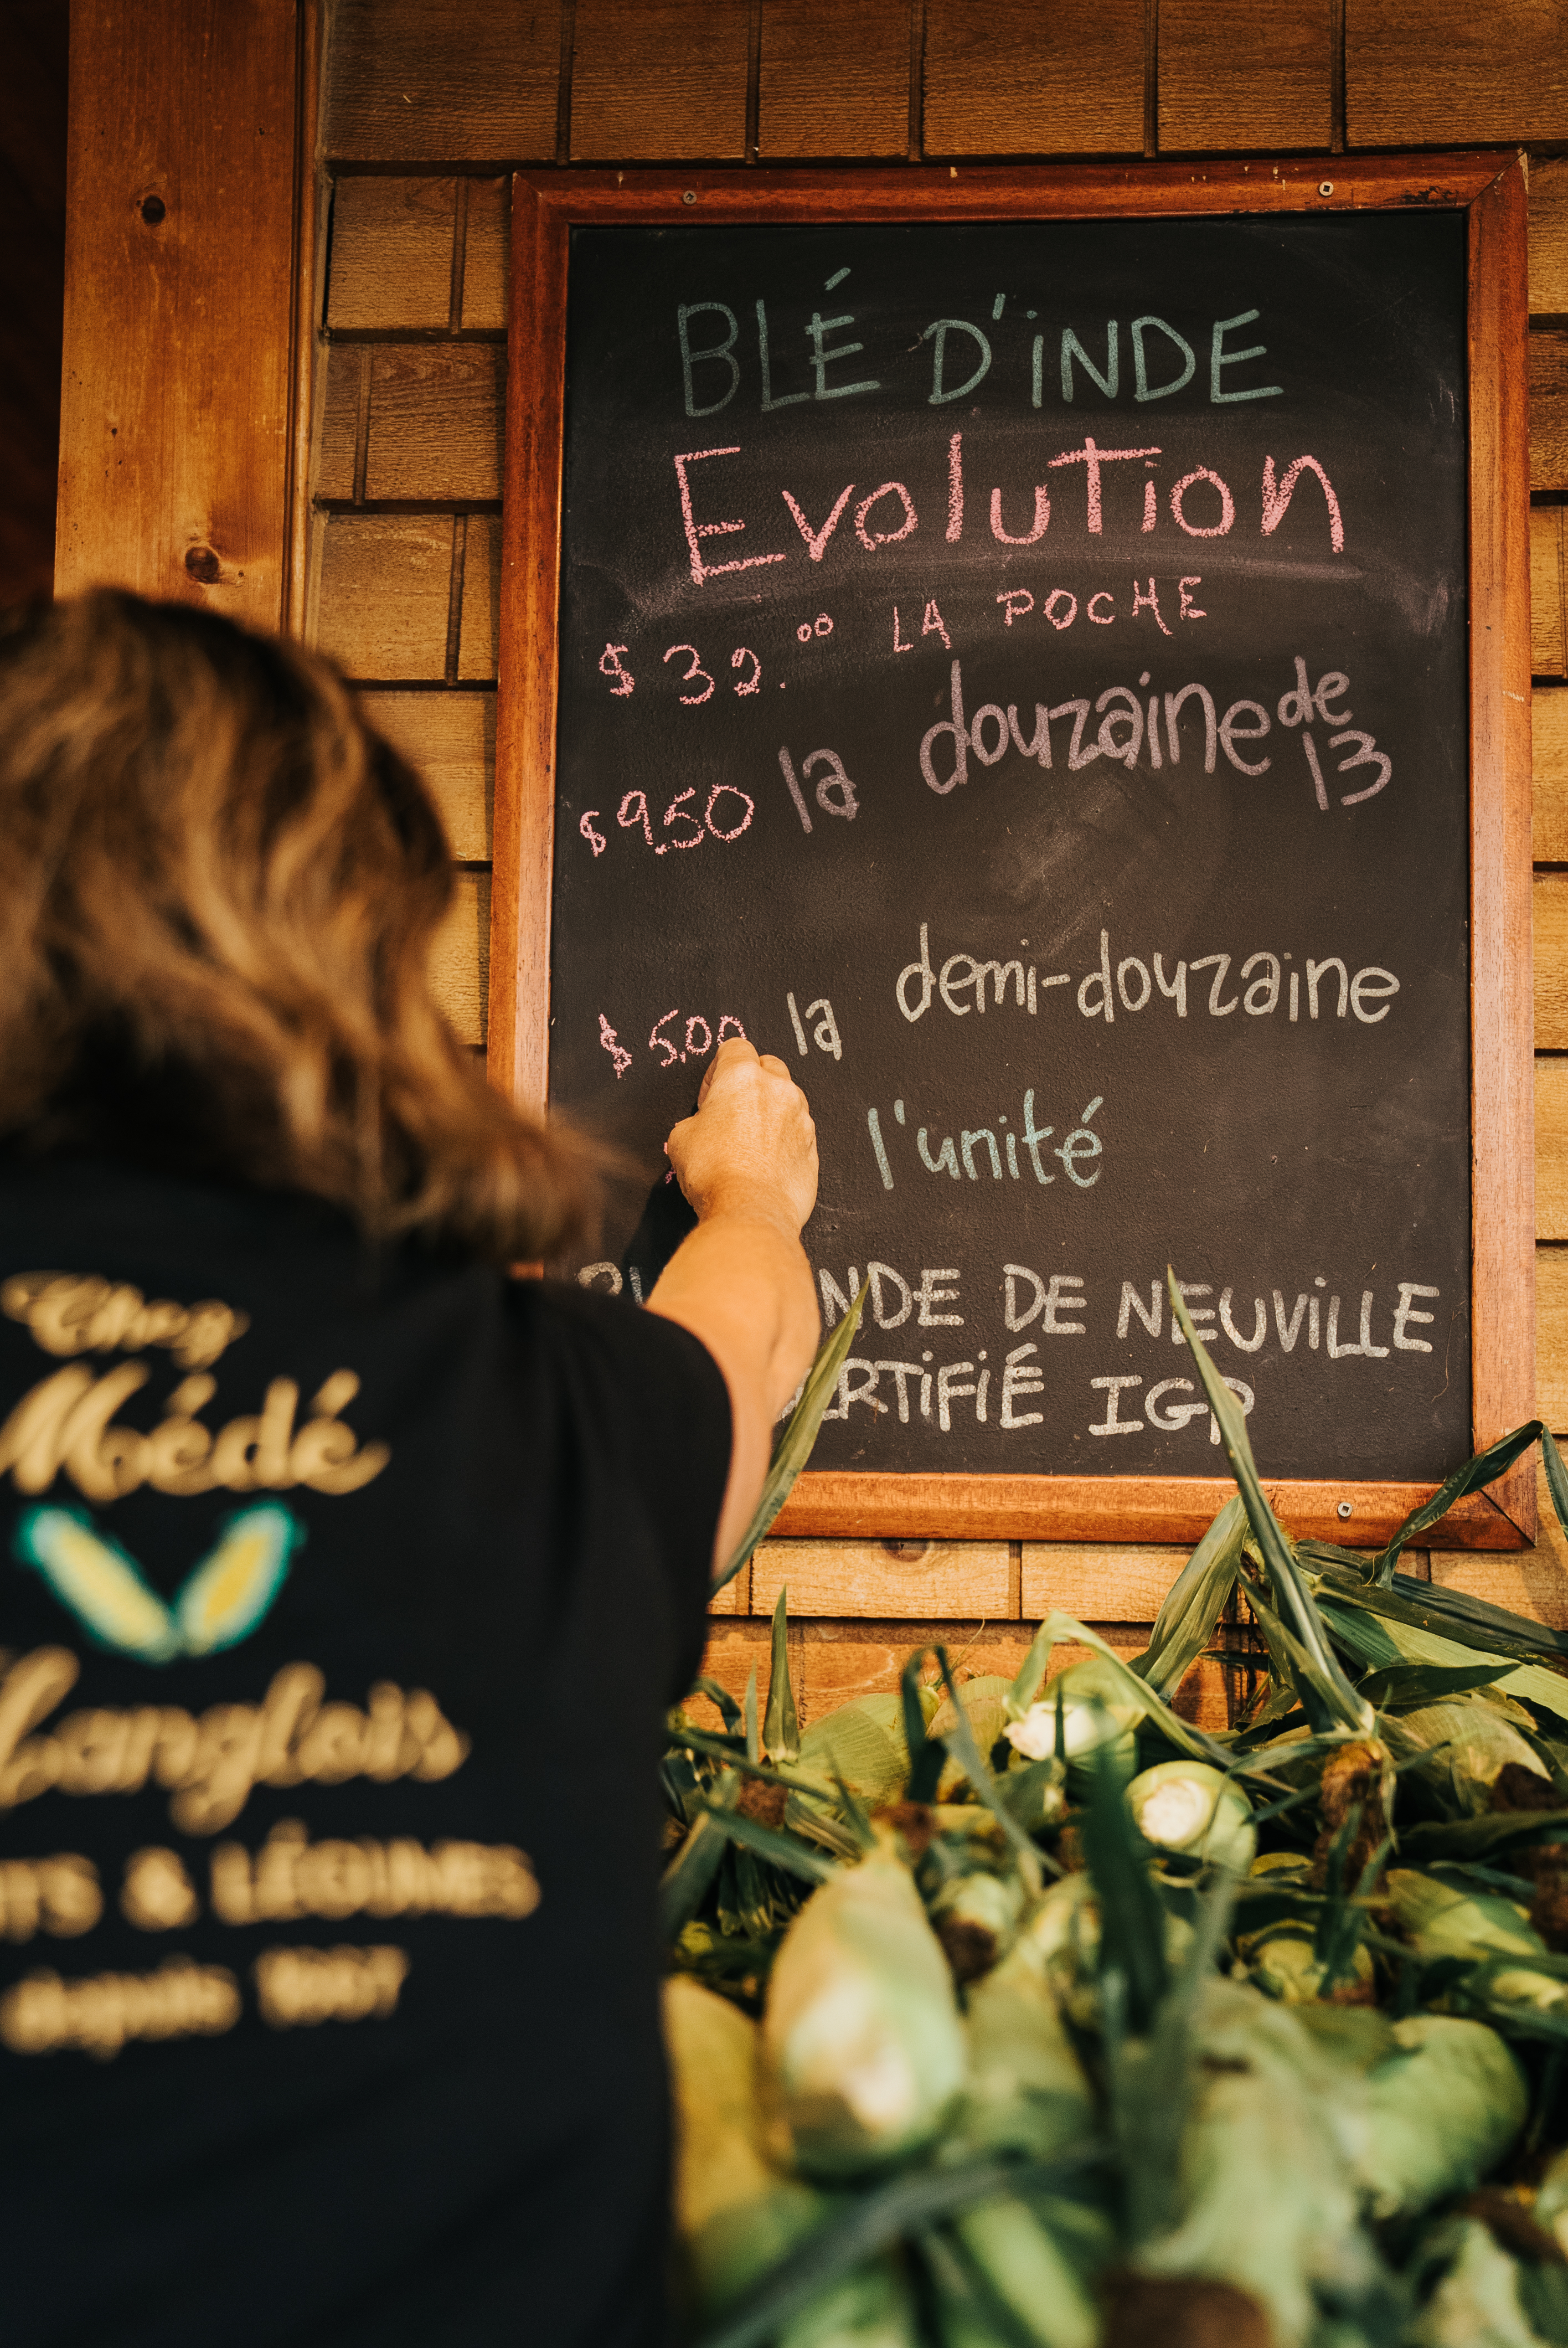 BLÉ D'iNDE
EvoluTion
$ 32.⁰⁰ LA POCHE
$9.50 la douzaine de 13
$ 5,00 la demi-douzaine
l'unité
DE NEUViLLE
IGP
Chez
Médé
Langlois
& LÉGUMES
depuis